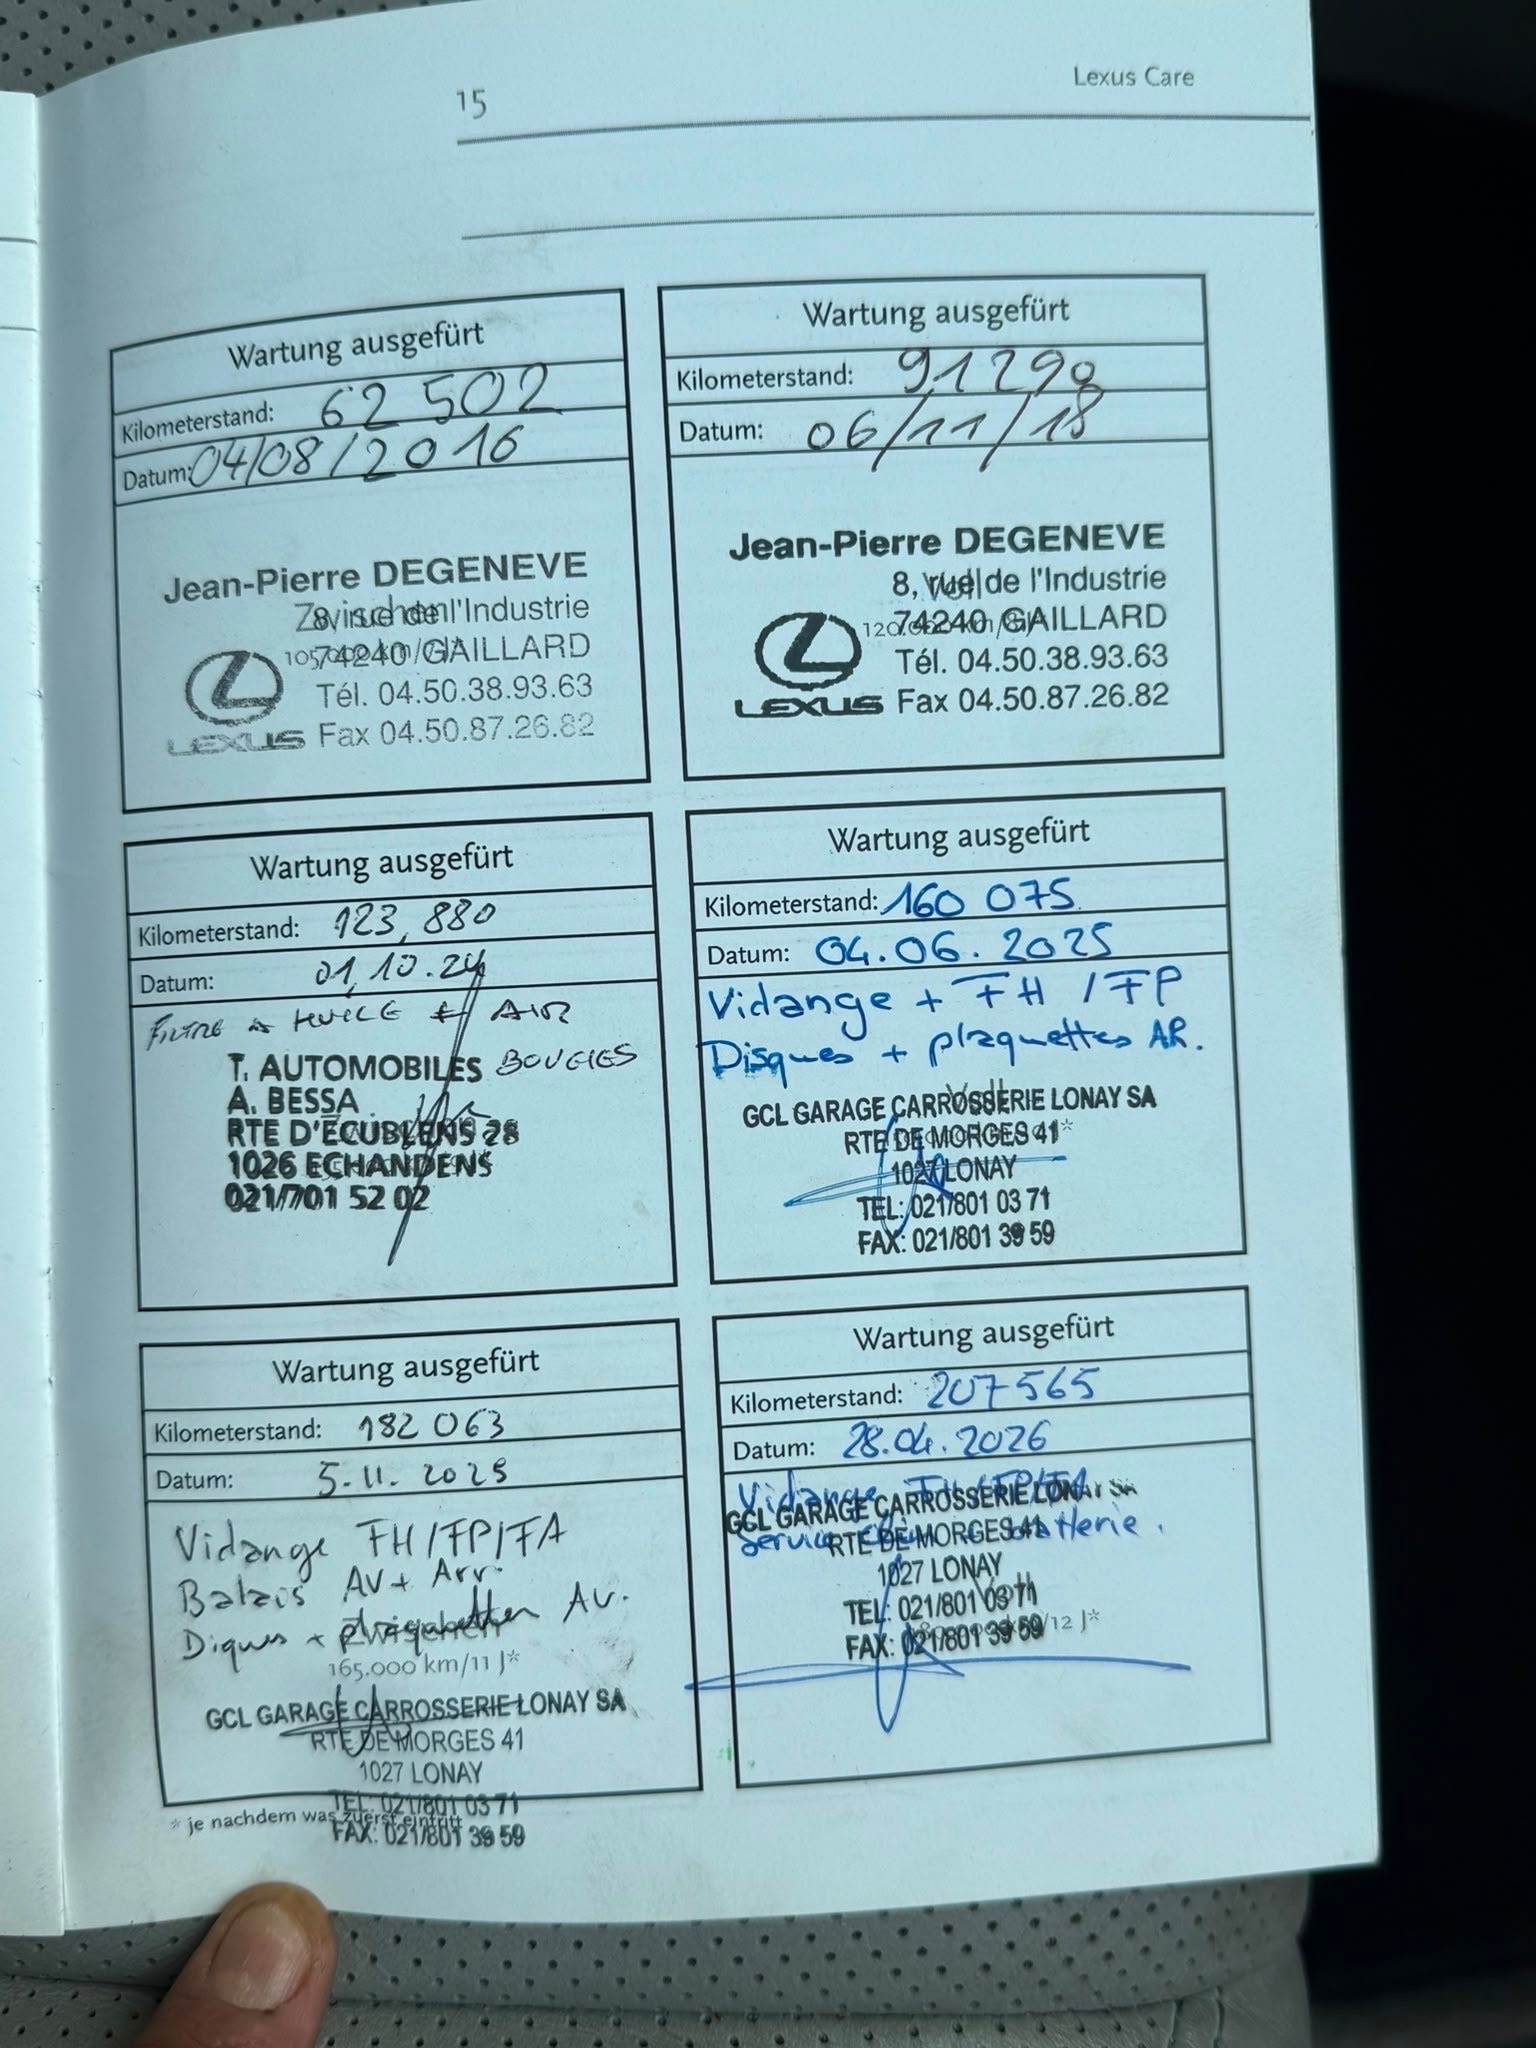 15
Lexus Care
Wartung ausgefürt
Kilometerstand: 62 502
Datum: 04/08/2016
Jean-Pierre DEGENEVE
8, rue de l'Industrie
Zwischen
74240 GAILLARD
Tél. 04.50.38.93.63
LEXUS Fax 04.50.87.26.82
Wartung ausgefürt
Kilometerstand: 91290
Datum: 06/11/18
Jean-Pierre DEGENEVE
8, rue de l'Industrie
Voll
74240 GAILLARD
Tél. 04.50.38.93.63
LEXUS Fax 04.50.87.26.82
Wartung ausgefürt
Kilometerstand: 123,880
Datum: 01,10.24
FILTRE à HUILE + AIR
BOUGIES
T. AUTOMOBILES
A. BESSA
RTE D'ECUBLENS 28
1026 ECHANDENS
021/701 52 02
Wartung ausgefürt
Kilometerstand: 160 075
Datum: 04.06.2025
Vidange + FH / FP
Disques + plaquettes AR.
GCL GARAGE CARROSSERIE LONAY SA
RTE DE MORGES 41
1027 LONAY
TEL: 021/801 03 71
FAX: 021/801 39 59
Wartung ausgefürt
Kilometerstand: 182 063
Datum: 5.11.2025
Vidange FH/FP/FA
Balais AV + Arr.
Diques + plaquetten AV.
Zwischen
165.000 km/11 J*
GCL GARAGE CARROSSERIE LONAY SA
RTE DE MORGES 41
1027 LONAY
TEL: 021/801 03 71
FAX: 021/801 39 59
Wartung ausgefürt
Kilometerstand: 207565
Datum: 28.04.2026
Vidange FH/FP/FA
Service batterie.
GCL GARAGE CARROSSERIE LONAY SA
RTE DE MORGES 41
1027 LONAY
TEL: 021/801 03 71
Voll
FAX: 021/801 39 59
/12 J*
* je nachdem was zuerst eintritt